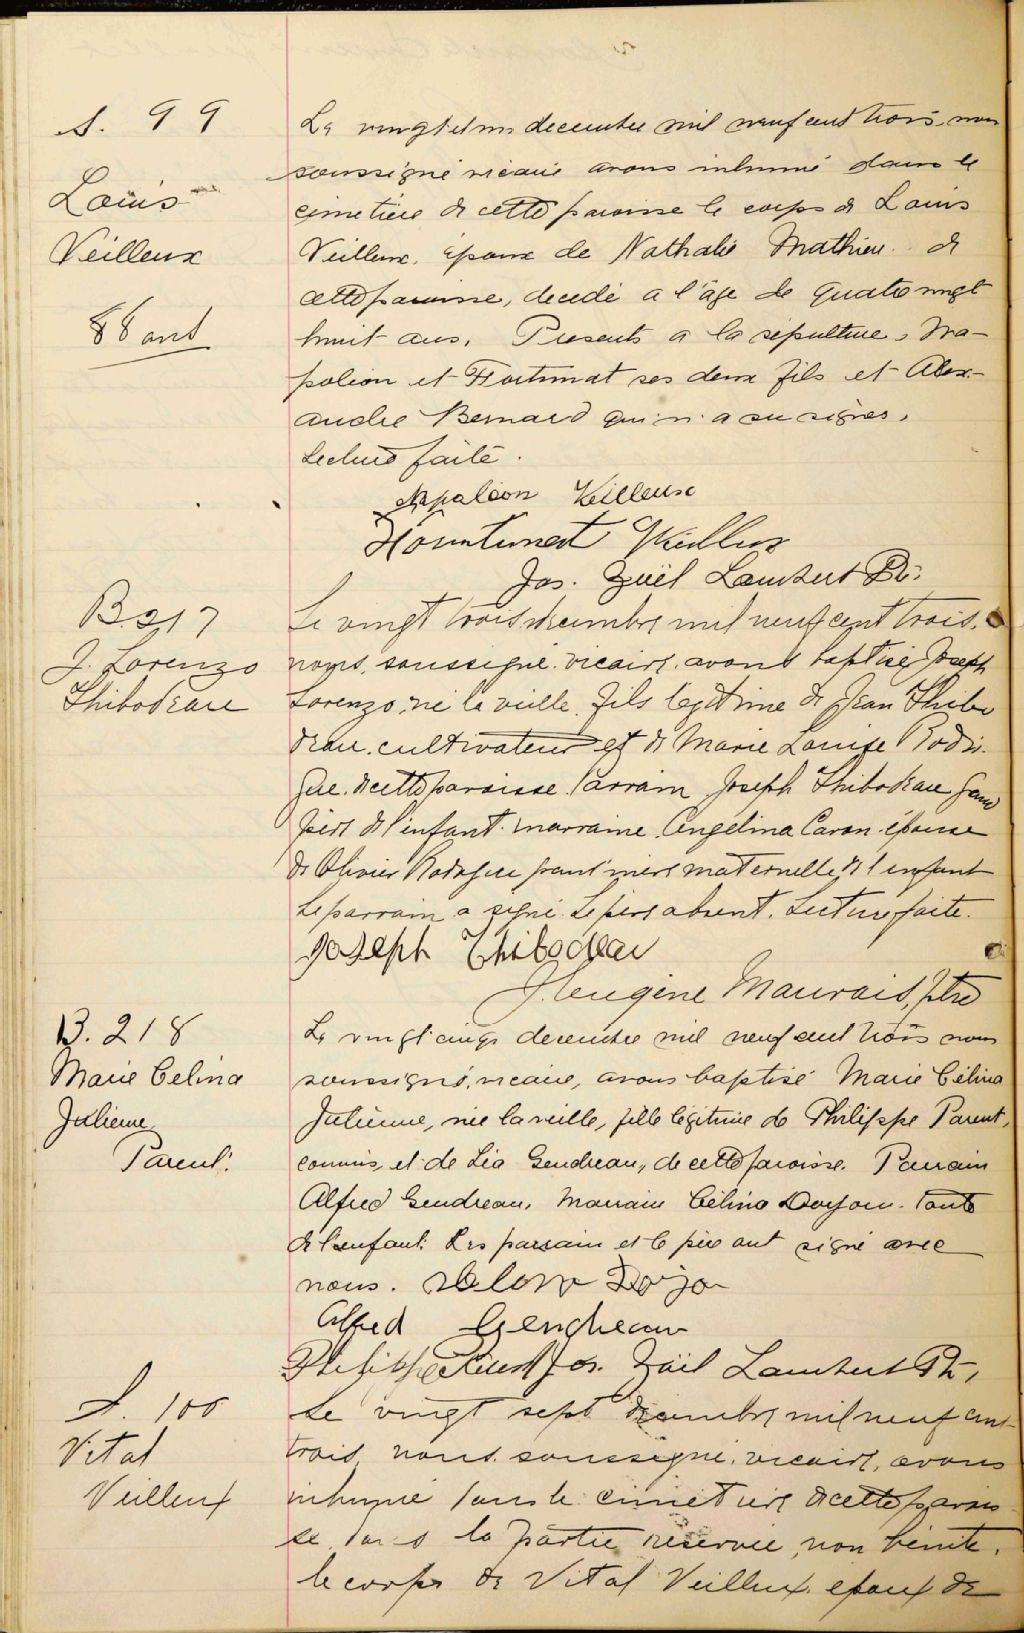 S. 99
Louis
Veilleux
88 ans
Le vingt et un decembre mil neuf cent trois, nous
soussigné vicaire avons inhumé dans le
cimetière de cette paroisse le corps de Louis
Veilleux, époux de Nathalie Mathieu de
cette paroisse, decedé a l'âge de quatre vingt
huit ans. Presents a la sépulture, Na-
poleon et Fortunat ses deux fils et Alex-
andre Bernard qui n'a su signer.
Lecture faite.
Napoléon Veilleux
Fourtunat Veilleux
Jos. Zoël Lambert Ptr.
B. 217
J. Lorenzo
Thibodeau
Le vingt trois decembre mil neuf cent trois,
nous, soussigné vicaire, avons baptisé Joseph
Lorenzo, né la veille, fils légitime de Jean Thibo
deau, cultivateur et de Marie Louise Rodri-
gue, de cette paroisse. Parrain Joseph Thibodeau grand
père de l'enfant, marraine Angelina Caron épouse
de Olivier Rodrigue grand'mère maternelle de l'enfant
Le parrain a signé. Le père absent. Lecture faite.
Joseph Thibodeau
J. Eugène Mauvais, ptre
B. 218
Marie Celina
Julienne
Parent.
Le vingt cinq decembre mil neuf cent trois nous
soussigné, vicaire, avons baptisé Marie Célina
Julienne, née la veille, fille légitime de Philippe Parent,
commis, et de Léa Gendreau, de cette paroisse. Parrain
Alfred Gendreau, Marraine Célina Doyon, tante
de l'enfant. Les parrain et le père ont signé avec
nous. Doyon
Alfred Gendreau
Philippe Parent Jos. Zoël Lambert Ptr,
S. 100
Vital
Veilleux
Le vingt sept decembre mil neuf cent
trois, nous, soussigné, vicaire, avons
inhumé dans le cimetière de cette parois
se, dans la partie réservée, non bénite,
le corps de Vital Veilleux, epoux de